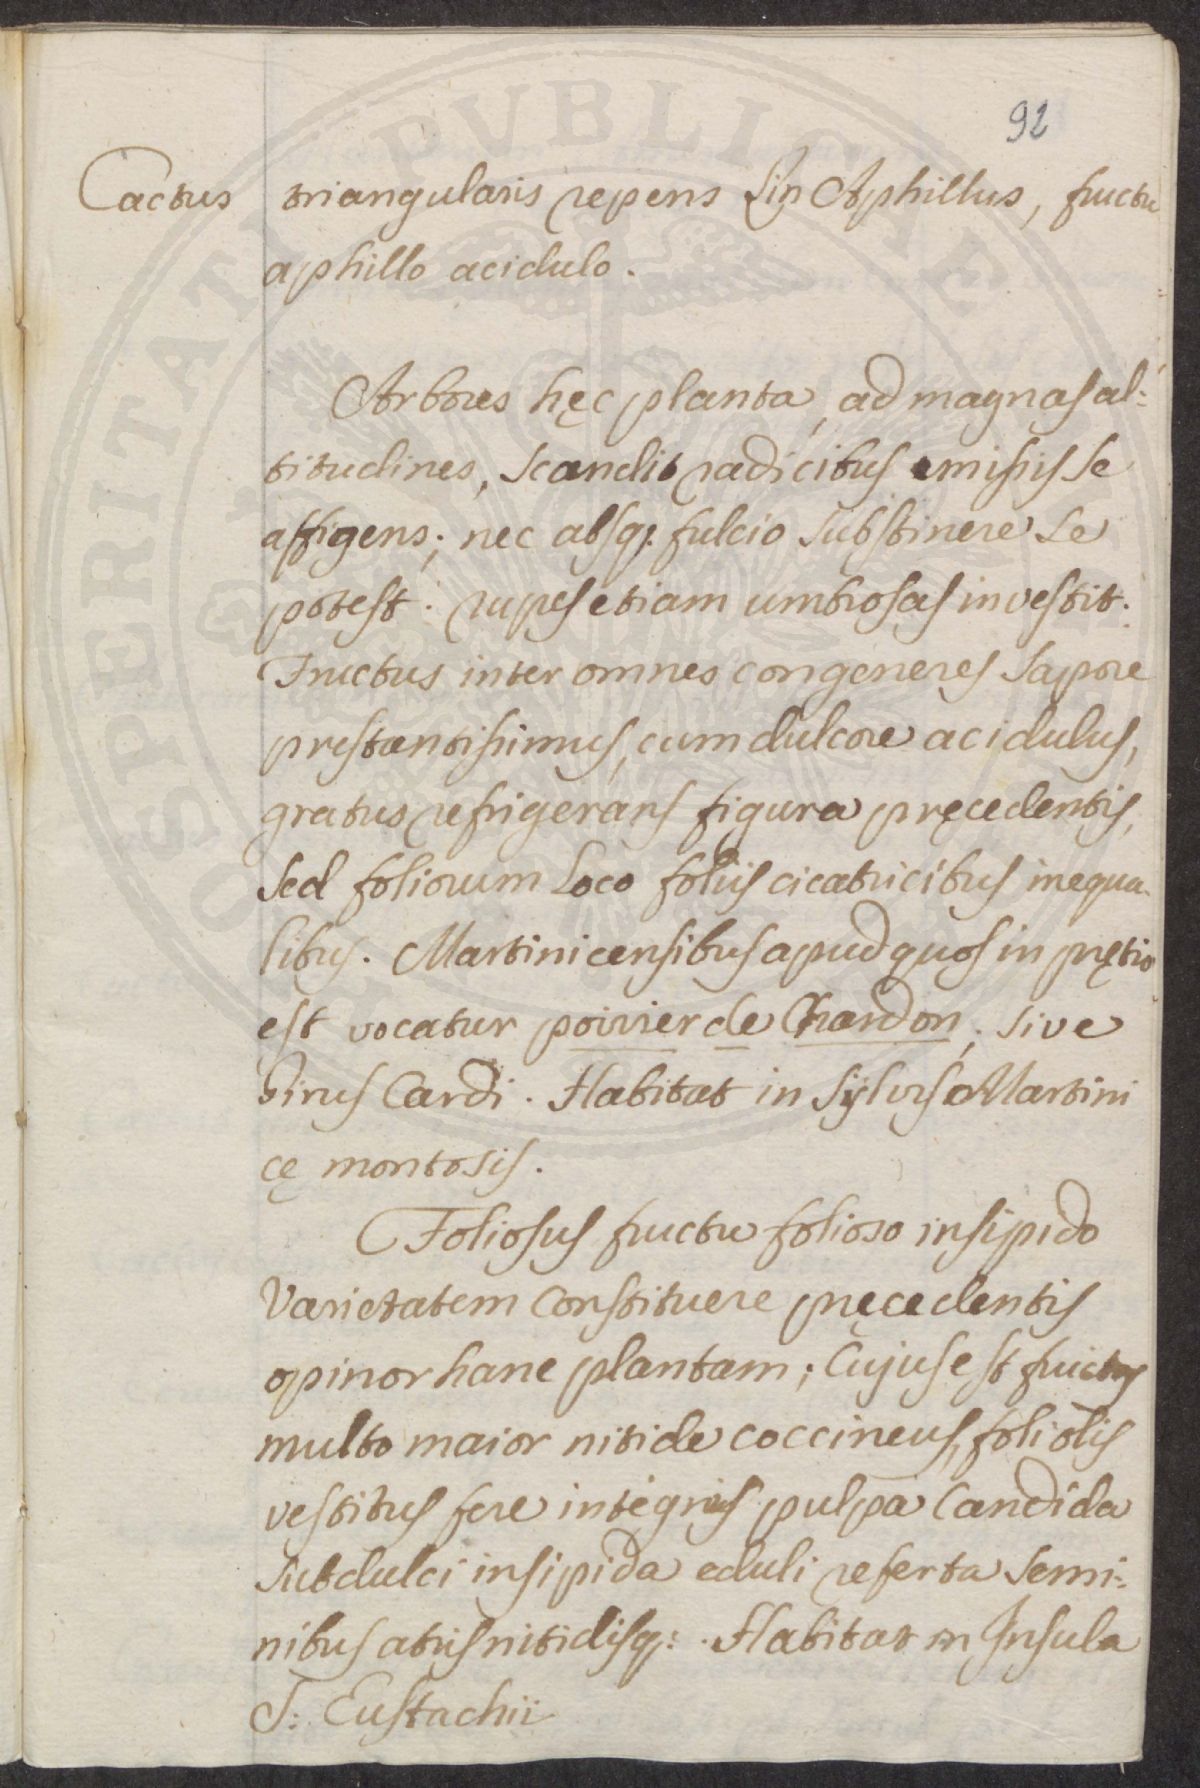 92
Cactus triangularis repens Lin Aphillus, fructu
aphillo acidulo.
Arbores hęc planta, ad magnas al:
titudines, scandit radicibus emissis se
affigens; nec absq: fulcio substinere se
potest. rupes etiam umbrosas investit.
Fructus inter omnes congeneres sapore
prestantissimus, cum dulcore acidulus,
gratus refrigerans figura pręcedentis,
sed foliorum loco foliis cicatricibus inequa-
libus. Martinicensibus apud quos in prętio
est vocatur poirier de Chardon, sive
Pirus Cardi. Habitat in sylvis Martini
cę montosis.
Foliosus fructu folioso insipido
Varietatem Constituere pręcedentis
opinor hanc plantam; Cujus est fructus
multo maior nitide coccineus, foliolis
vestitus fere integris pulpa Candida
subdulci insipida eduli referta semi:
nibus atris nitidisq: . Habitat in Insula
S: Eustachii
PROSPERITATI PUBLICAE